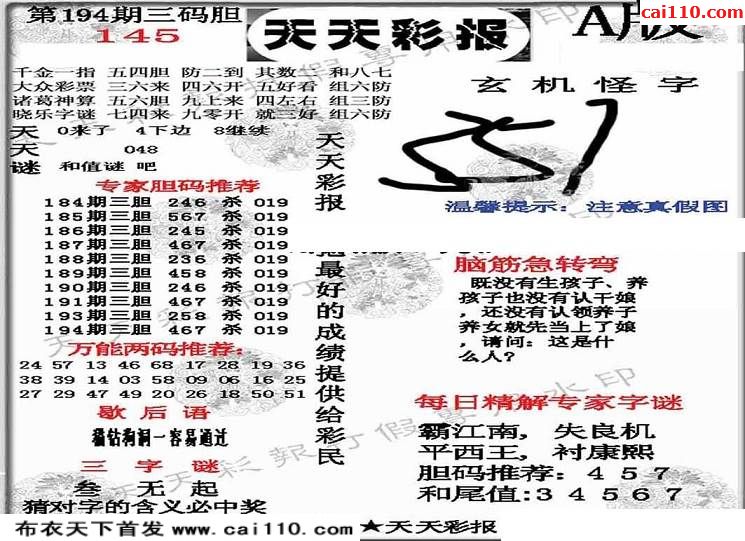 第194期三码胆
145
天天彩报
A版
cai110.com
千金一指 五四胆 防二到 其数三 和八七
大众彩票 三六来 四六开 五好看 组六防
诸葛神算 五六胆 九上来 四左右 组三防
晓乐字谜 七四来 九零开 就三好 组六防
天 0来了 4下边 8继续
天 048
谜 和值谜 吧
玄机怪字
557
温馨提示：注意真假图
专家胆码推荐
184期三胆 246 杀 019
185期三胆 567 杀 019
186期三胆 245 杀 019
187期三胆 467 杀 019
188期三胆 236 杀 019
189期三胆 458 杀 019
190期三胆 246 杀 019
191期三胆 467 杀 019
193期三胆 258 杀 019
194期三胆 467 杀 019
万能两码推荐:
24 57 13 46 68 17 28 19 36
38 39 14 03 58 09 06 16 25
27 29 47 49 20 26 18 50 51
歇后语
猫钻狗洞－容易通过
三字谜
叁无起
猜对字的含义必中奖
天天彩报
最好的成绩提供给彩民
脑筋急转弯
既没有生孩子、养
孩子也没有认干娘
，还没有认领养子
养女就先当上了娘
，请问：这是什
么人？
每日精解专家字谜
霸江南, 失良机
平西王, 衬康熙
胆码推荐: 4 5 7
和尾值:3 4 5 6 7
布衣天下首发 www.cai110.com ★天天彩报